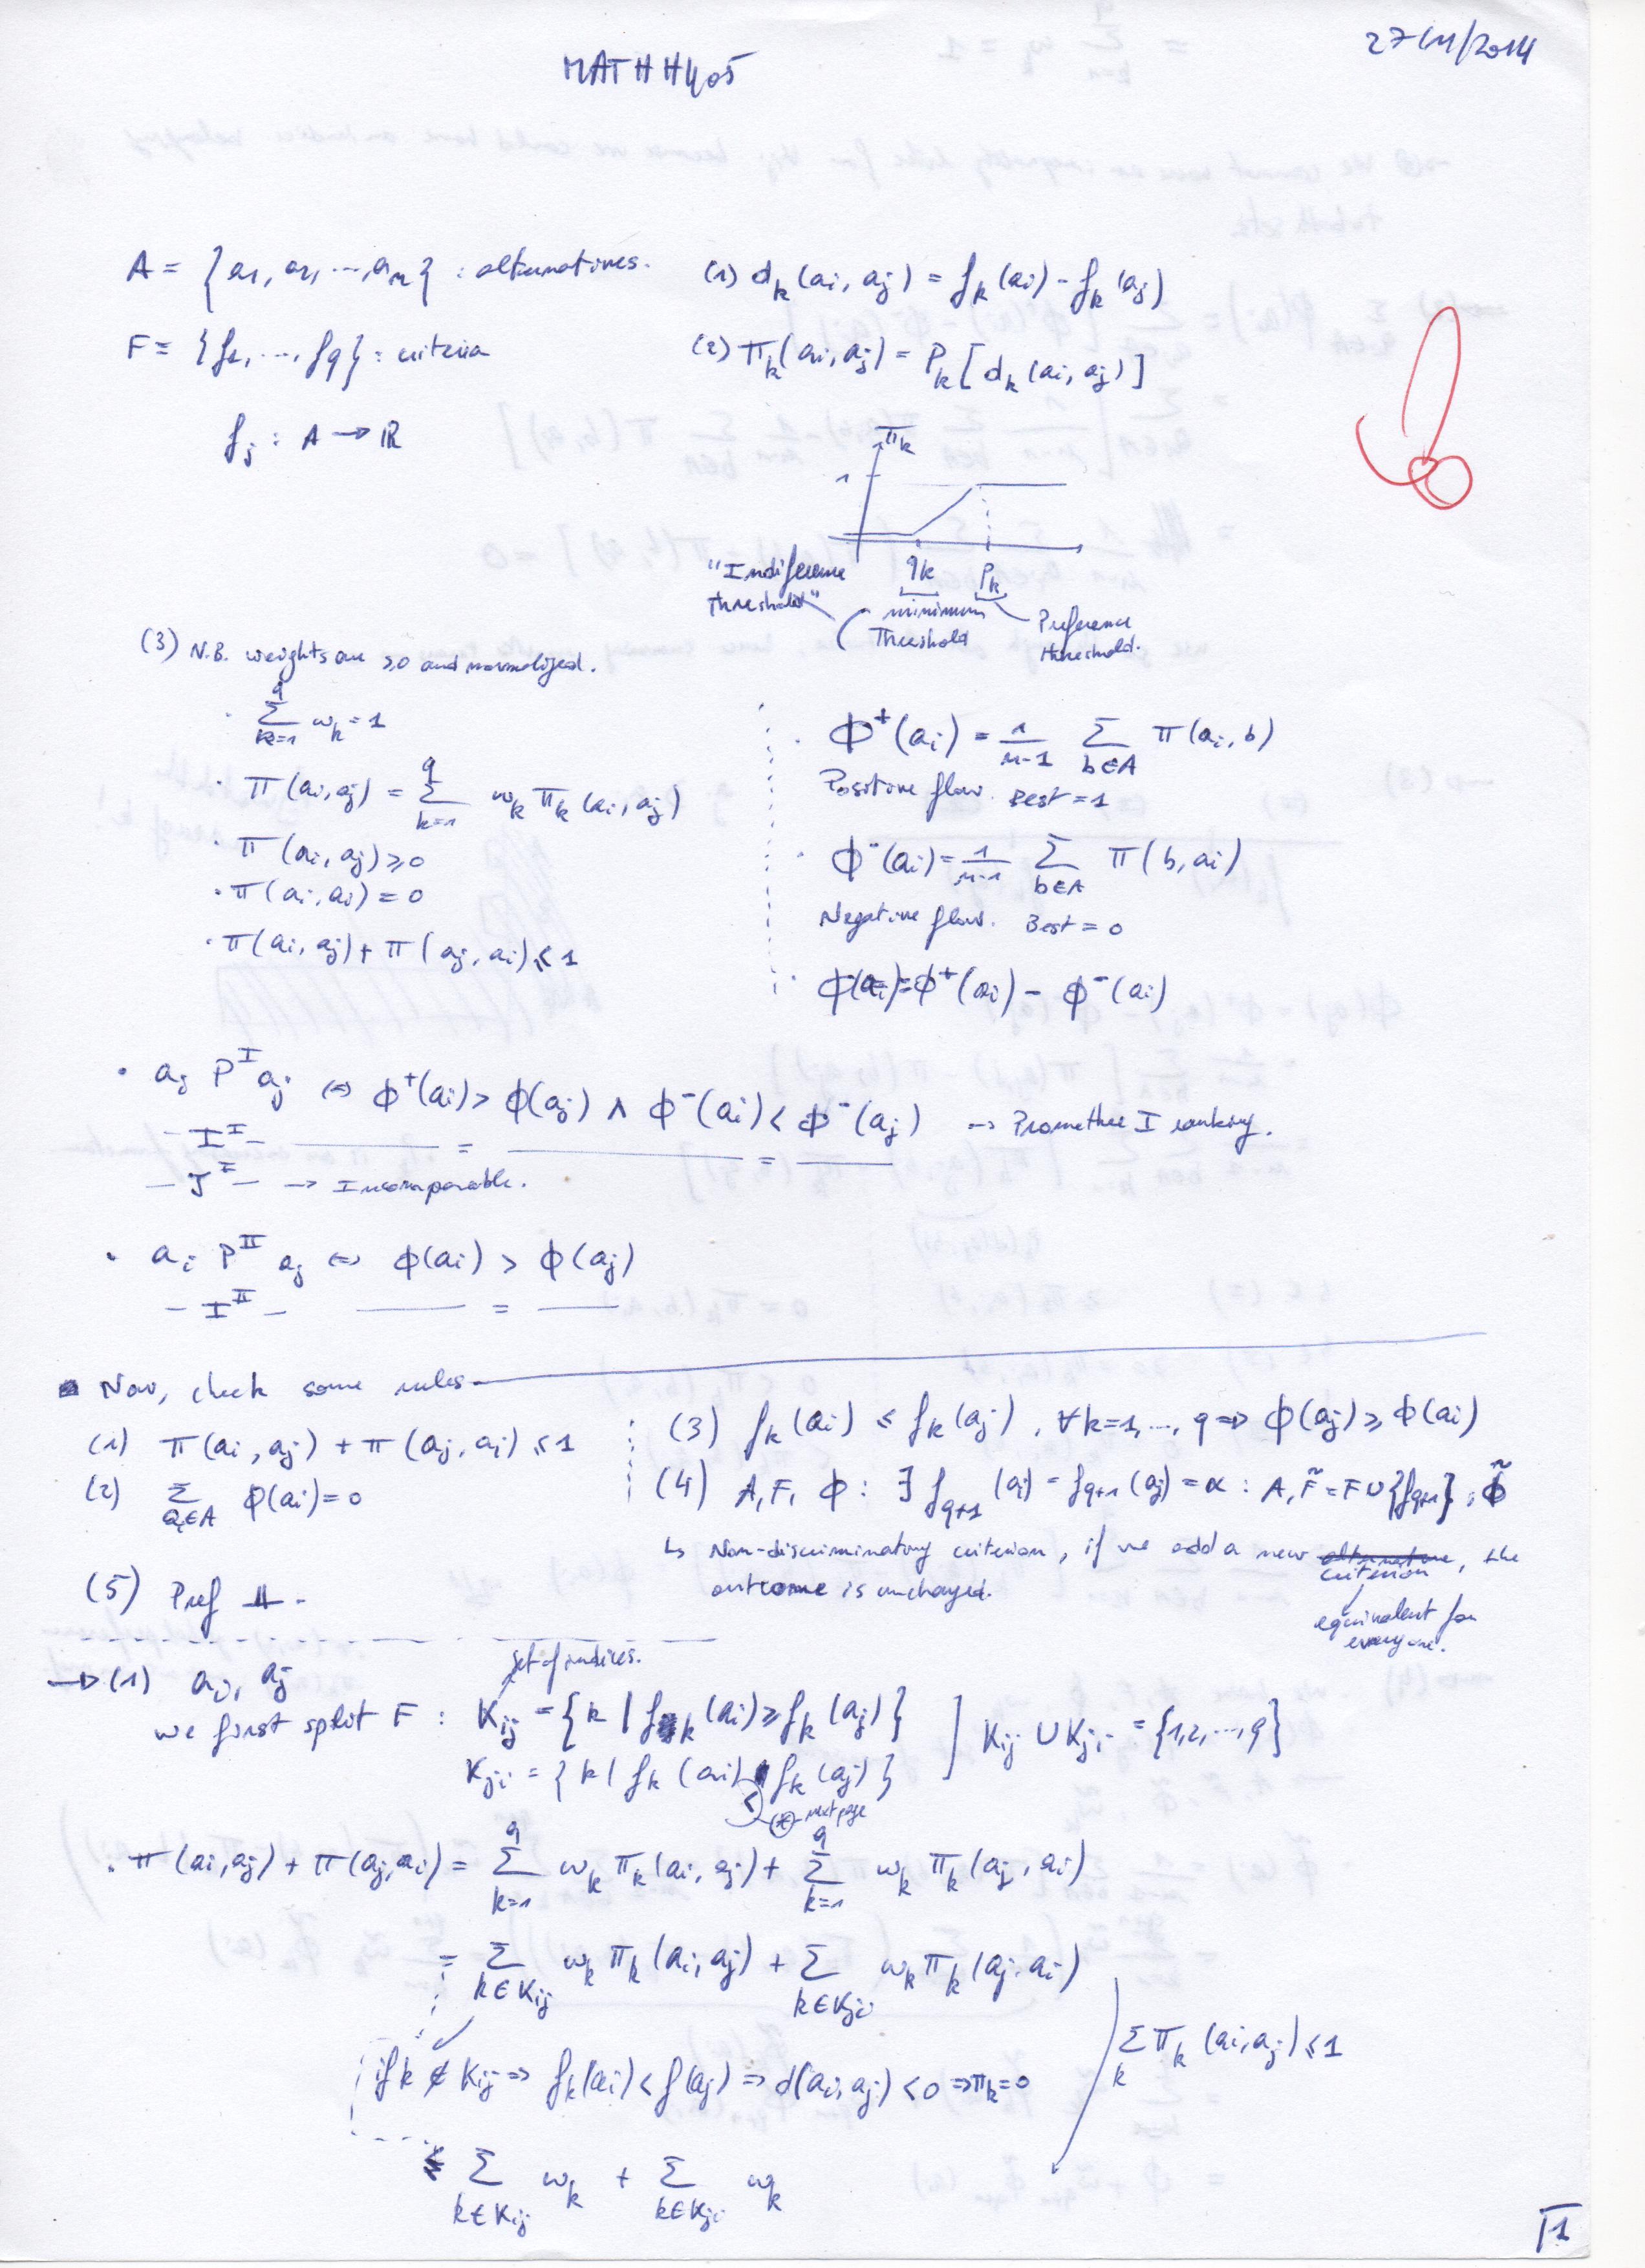 27/11/2014
MATHH405
A = {a1, a2, ..., an} : alternatives.
(1) d_k(ai, aj) = f_k(ai) - f_k(aj)
F = {f1, ..., fq} : criteria
(2) π_k(ai, aj) = P_k[d_k(ai, aj)]
f_j : A → ℝ
π_k
1
q_k
P_k
"Indiference
threshold"
minimum
Threshold
Preference
threshold.
(3) N.B. weights are ≥0 and normalized.
· Σ_{k=1}^{q} w_k = 1
· π(ai, aj) = Σ_{k=1}^{q} w_k π_k(ai, aj)
· π(ai, aj) ≥ 0
· π(ai, ai) = 0
· π(ai, aj) + π(aj, ai) ≤ 1
· Φ⁺(ai) = 1/(n-1) Σ_{b∈A} π(ai, b)
Positive flow. Best = 1
· Φ⁻(ai) = 1/(n-1) Σ_{b∈A} π(b, ai)
Negative flow. Best = 0
· Φ(ai) = Φ⁺(ai) - Φ⁻(ai)
· ai P^I aj ⇔ Φ⁺(ai) > Φ(aj) ∧ Φ⁻(ai) < Φ⁻(aj) → Promethee I ranking.
- I^I - = =
- J^I - → Incomparable.
· ai P^II aj ⇔ Φ(ai) > Φ(aj)
- I^II - =
Now, check some rules
(1) π(ai, aj) + π(aj, ai) ≤ 1
(2) Σ_{ai∈A} Φ(ai) = 0
(3) f_k(ai) ≤ f_k(aj), ∀k=1, ..., q ⇒ Φ(aj) ≥ Φ(ai)
(4) A, F, Φ : ∃ f_{q+1}(ai) = f_{q+1}(aj) = α : A, F̃ = F ∪ {f_{q+1}}, Φ̃
↳ Non-discriminatory criterion, if we add a new criterion, the
outcome is unchanged.
equivalent for
everyone.
(5) Pref
→ (1) ai, aj
set of indices.
we first split F : K_ij = {k | f_k(ai) ≥ f_k(aj)}
K_ji = {k | f_k(ai) < f_k(aj)}
] K_ij ∪ K_ji = {1,2,...,q}
(*) next page
· π(ai, aj) + π(aj, ai) = Σ_{k=1}^{q} w_k π_k(ai, aj) + Σ_{k=1}^{q} w_k π_k(aj, ai)
= Σ_{k∈K_ij} w_k π_k(ai, aj) + Σ_{k∈K_ji} w_k π_k(aj, ai)
if k ∉ K_ij ⇒ f_k(ai) < f(aj) ⇒ d(ai, aj) < 0 ⇒ π_k = 0
Σ_k π_k(ai, aj) ≤ 1
≤ Σ_{k∈K_ij} w_k + Σ_{k∈K_ji} w_k
1